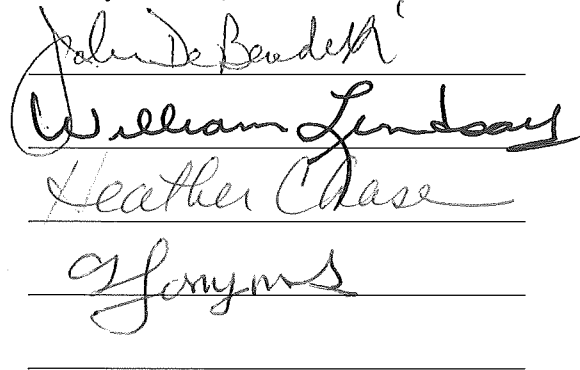 John De Benedetti
William Lindsay
Heather Chase